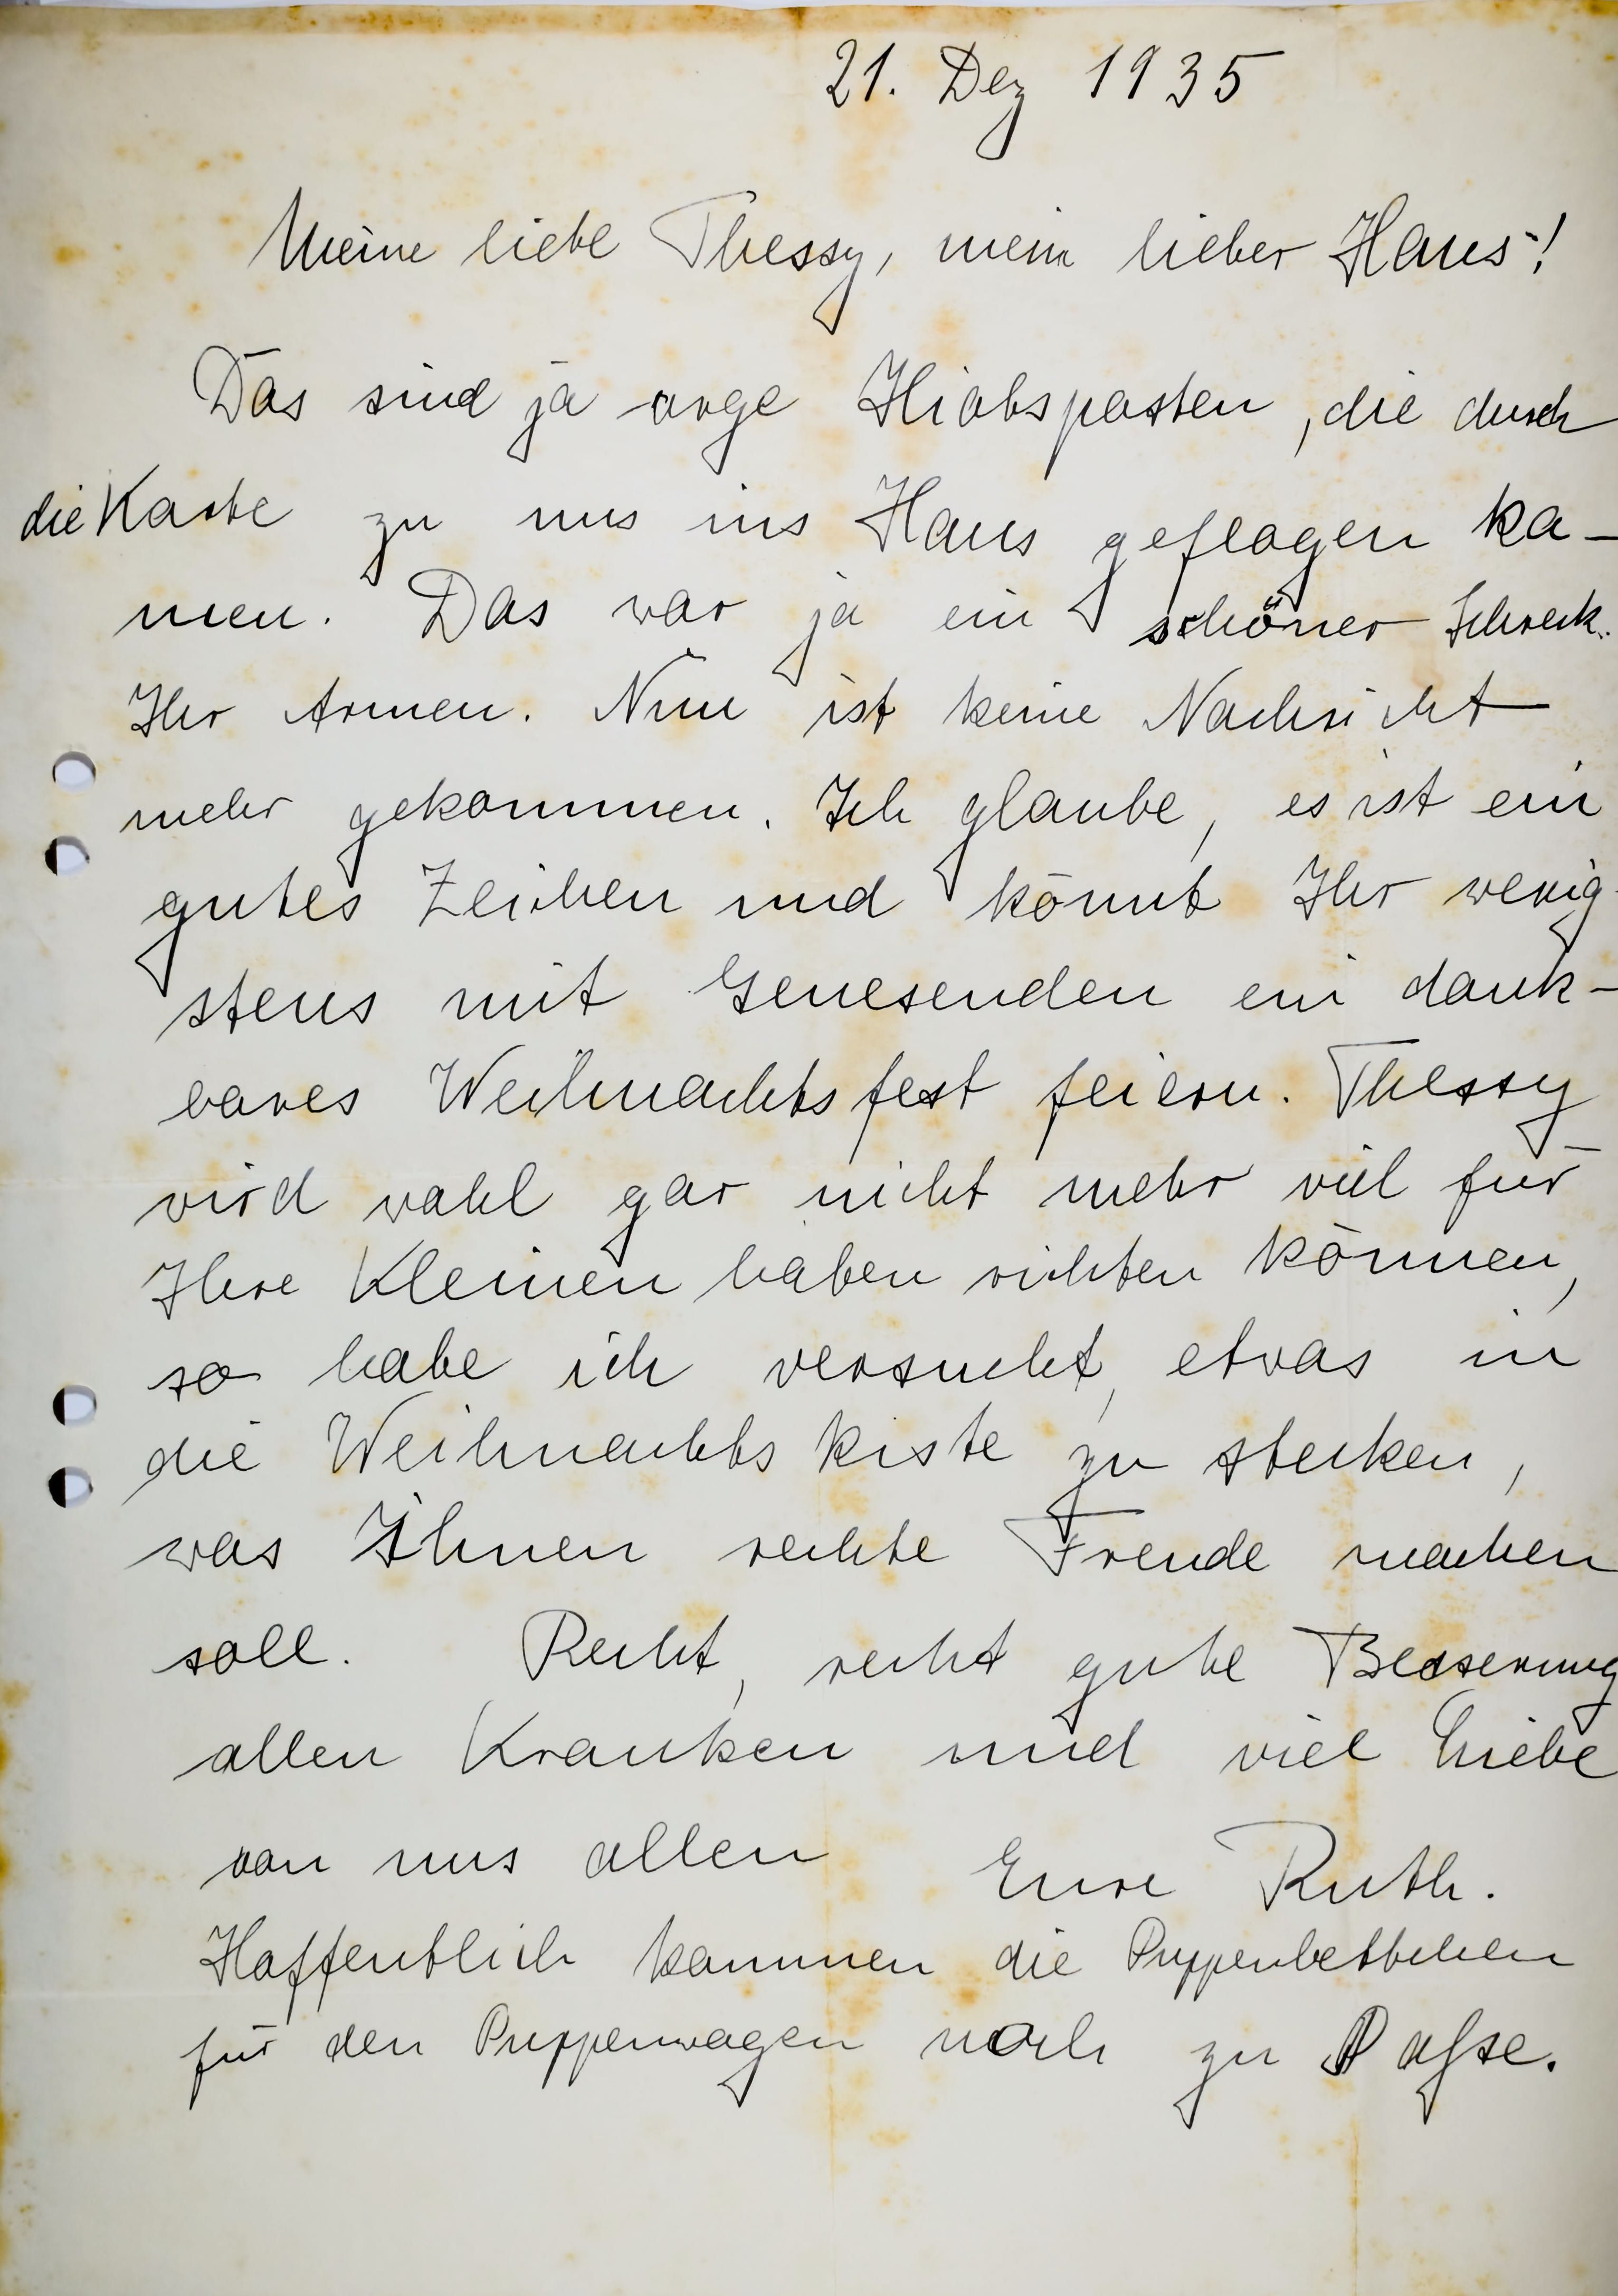 21. Dez 1935
Meine liebe Thessy, mein lieber Hans!
Das sind ja arge Hiobsposten, die durch
die Karte zu uns ins Haus geflogen ka-
men. Das war ja ein schöner Schreck.
Ihr Armen. Nun ist keine Nachricht
mehr gekommen. Ich glaube, es ist ein
gutes Zeichen und könnt Ihr wenig-
stens mit Genesenden ein dank-
bares Weihnachtsfest feiern. Thessy
wird wohl gar nicht mehr viel für
Ihre Kleinen haben richten können,
so habe ich versucht, etwas in
die Weihnachtskiste zu stecken,
was Ihnen rechte Freude machen
soll. Recht, recht gute Besserung
allen Kranken und viel Liebe
von uns allen Eure Ruth.
Hoffentlich kommen die Puppenbettchen
für den Puppenwagen noch zu Paße.